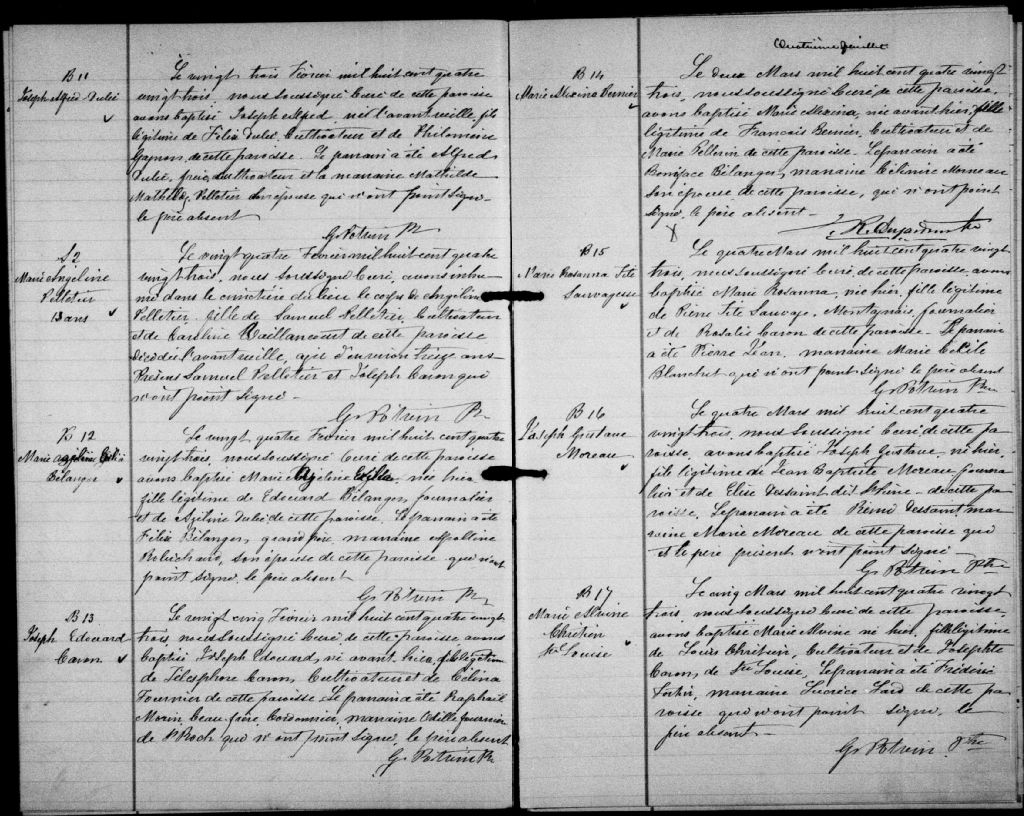 B 11
Joseph Alfred Dubé
Le vingt trois Février mil huit cent quatre
vingt trois, nous soussigné Curé de cette paroisse
avons baptisé Joseph Alfred né l'avant veille, fils
légitime de Félix Dubé, Cultivateur et de Philomène
Gagnon de cette paroisse. Le parrain a été Alfred
Dubé, cultivateur et la marraine Mathilde
Mathilde Pelletier son épouse qui n'ont point signé
le père absent
G. Potvin Ptr
S 2
Marie Angeline
Pelletier
13 ans
Le vingt quatre Février mil huit cent quatre
vingt trois, nous soussigné Curé, avons inhu
mé dans le cimetière du lieu le corps de Angeline
Pelletier, fille de Samuel Pelletier, Cultivateur
et de Caroline Vaillancourt de cette paroisse
décédée l'avant veille, agée d'environ ans
Présens Samuel Pelletier et Joseph Caron qui
n'ont point signé
G. Potvin Ptr
B 12
Marie
Bélanger
Le vingt quatre Février mil huit cent quatre
vingt trois, nous soussigné Curé de cette paroisse
avons baptisé Marie née hier
fille légitime de Edouard Bélanger, journalier
et de Dubé de cette paroisse. Le parrain a été
Félix Bélanger, grand père, marraine Apolline
Robichaud, son épouse de cette paroisse qui n'ont
point signé, le père absent
G. Potvin Ptr
B 13
Joseph Edouard
Caron
Le vingt cinq Février mil huit cent quatre vingt
trois, nous soussigné Curé de cette paroisse avons
baptisé Joseph Edouard, né avant hier, fils légitime
de Télesphore Caron, Cultivateur et de Célina
Fournier de cette paroisse Le parrain a été Raphaël
Morin, beau frère, Cordonnier, marraine Odille Fournier
de St Roch qui n'ont point signé, le père absent
G. Potvin Ptr
Quatrième feuillet
B 14
Marie Alexina Bernier
Le deux Mars mil huit cent quatre vingt
trois, nous soussigné Curé de cette paroisse,
avons baptisé Marie Alexina, née avant hier, fille
légitime de Francois Bernier, Cultivateur et de
Marie Pellerin de cette paroisse. Le parrain a été
Boniface Bélanger, marraine Célimire Morneau
son épouse de cette paroisse, qui n'ont point
signé, le père absent
R. Desjardins Ptr
B 15
Marie Rosanna Tité
Sauvagesse
Le quatre Mars mil huit cent quatre vingt
trois, nous soussigné Curé de cette paroisse, avons
baptisé Marie Rosanna, née hier, fille légitime
de Pierre Tité Sauvage, Montagnais, journalier
et de Rosalie Caron de cette paroisse. Le parrain
a été Pierre Jean, marraine Marie Cécile
Blanchet qui n'ont point signé le père absent
G. Potvin Ptre
B 16
Joseph Gustave
Moreau
Le quatre Mars mil huit cent quatre
vingt trois, nous soussigné Curé de cette pa
roisse, avons baptisé Joseph Gustave né hier,
fils légitime de Jean Baptiste Moreau journa
lier et de Elise Dessaint dit St Pierre de cette pa
roisse. Le parrain a été Rémi Dessaint mar
raine Marie Moreau de cette paroisse qui
et le père présent n'ont point signé
G. Potvin Ptre
B 17
Marie Alvine
Chrétien
Ste Louise
Le cinq Mars mil huit cent quatre vingt
trois, nous soussigné Curé de cette paroisse,
avons baptisé Marie Alvine né hier, fille légitime
de Louis Chrétien, Cultivateur et de Josephte
Caron, de Ste Louise, Le parrain a été Frédéric
Fortin, marraine Lucrèce de cette pa
roisse qui n'ont point signé, le
père absent
G. Potvin Ptre